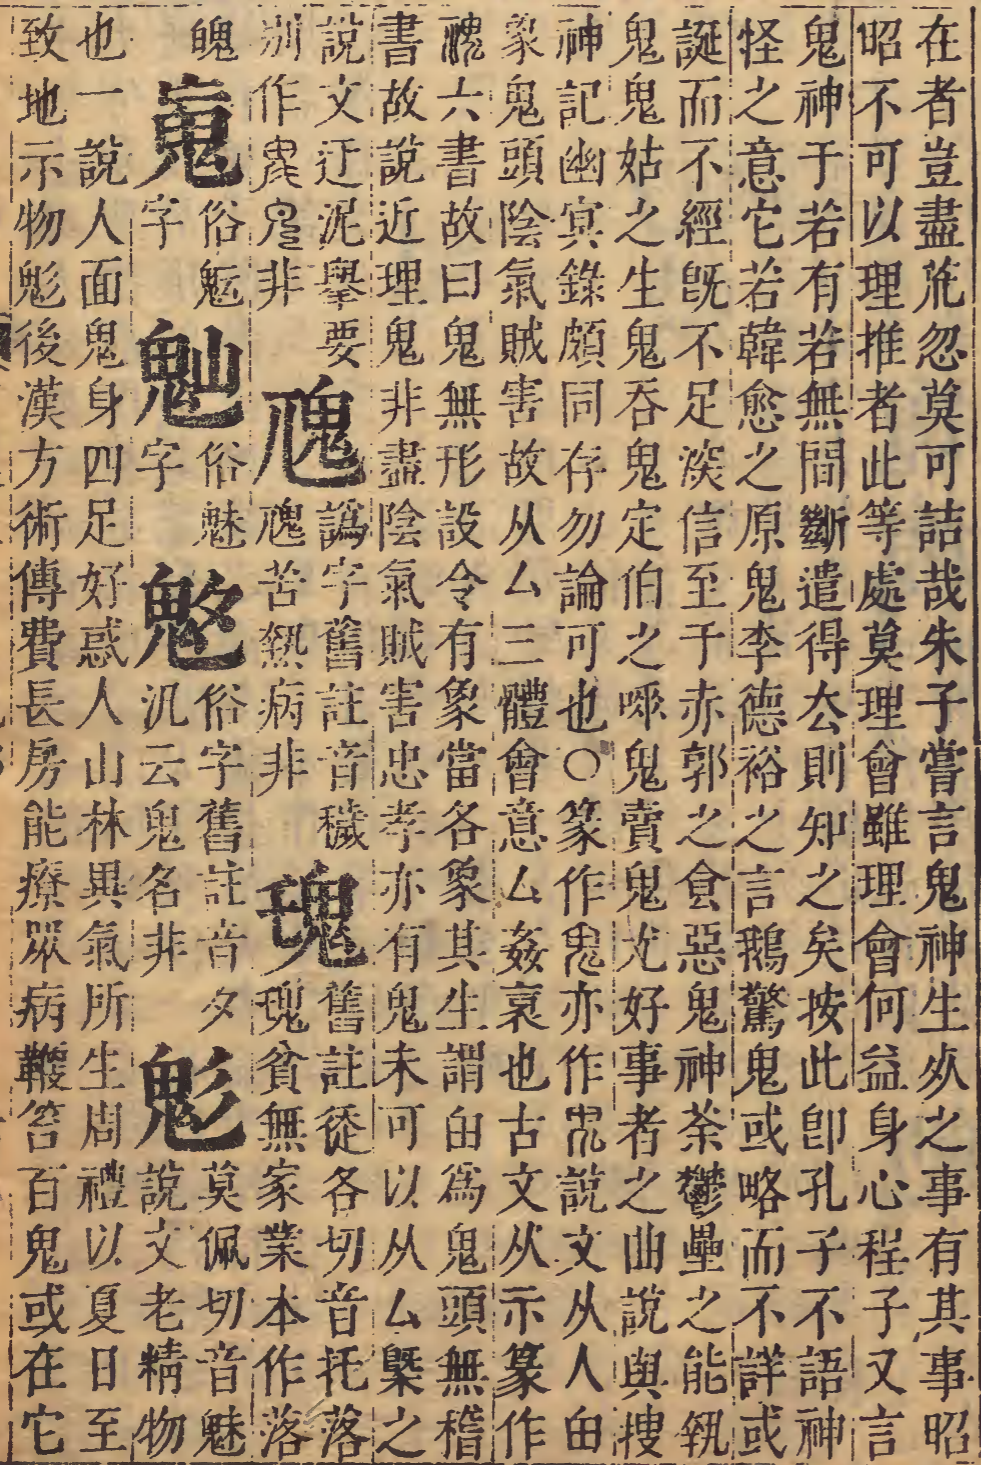 在者豈盡茫忽莫可詰哉朱子嘗言鬼神生死之事有其事昭
昭不可以理推者此等處莫理會雖理會何益身心程子又言
鬼神于若有若無間斷遣得去則知之矣按此卽孔子不語神
怪之意它若韓愈之原鬼李德裕之言鵝驚鬼或略而不詳或
誕而不經旣不足深信至于赤郭之食惡鬼神荼鬱壘之能執
鬼鬼姑之生鬼鬼吞鬼定伯之唾鬼賣鬼尤好事者之曲說與搜
神記幽冥錄頗同存勿論可也〇篆作𢇼亦作𤰞說文从人甶
象鬼頭陰氣賊害故从厶三體會意厶姦衺也古文从示篆作
䰠六書故曰鬼無形設令有象當各象其生謂甶爲鬼頭無稽
書故說近理鬼非盡陰氣賊害忠孝亦有鬼未可以从厶槩之
說文迂泥舉要
別作鬼非
䰟譌字舊註音穢
䰟苦熱病非
瑰舊註徒各切音托落
瑰貧無家業本作落
魄
鬽俗魭
字
䰡俗魅
字
䰨俗字舊註音夕
汎云鬼名非
鬽莫佩切音魅
說文老精物
也一說人面鬼身四足好惑人山林異氣所生周禮以夏日至
致地示物鬽後漢方術傳費長房能療眾病鞭笞百鬼或在它